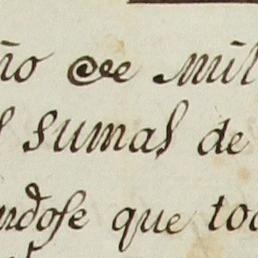 ño de Mil
s sumas de
ndose que to